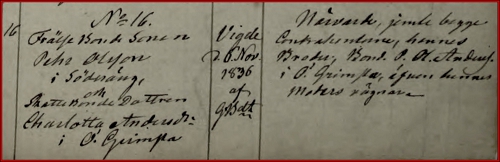 16
No 16.
Frälse Bonde Sonen
Pehr Olsson
i Södräng,
och
Skatte Bonde Dottren
Charlotta Andersdr
i Ö. Grimsta
Vigde
d. 6. Nov.
1836
af
Närvar. jemte begge
Contrahenterne, hennes
Broder, Bond. P. A. Anderss.
i Ö. Grimsta, äfven hennes
Moders vägnar.